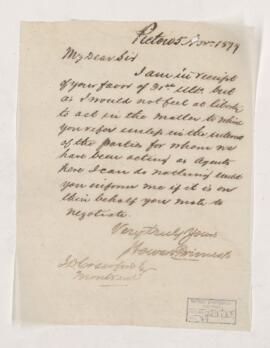 Pictou 5 Nov. 1879
My Dear Sir
I am in receipt
of your favor of 31st Ulto. but
as I would not feel at liberty
to act in the matter to which
you refer unless in the interest
of the parties for whom we
have been acting as Agents
here I can do nothing until
you inform me if it is on
their behalf you wish to
negotiate.
Very truly Yours
Howard Primrose
Montreal